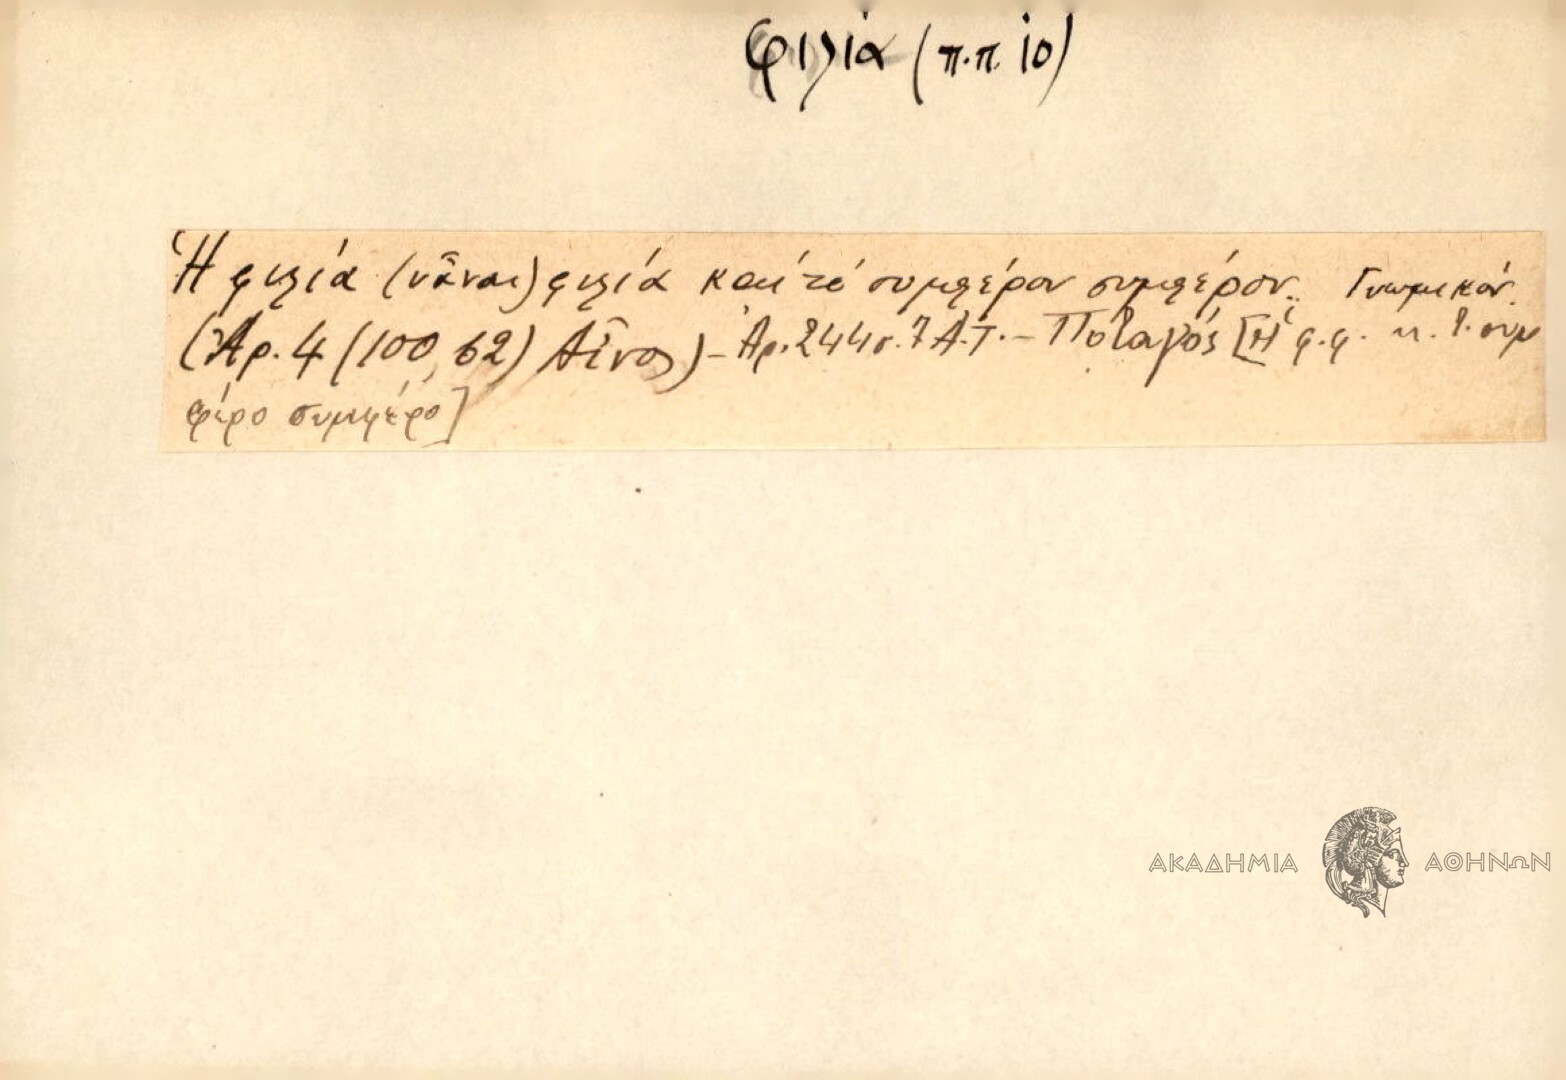 φιλία (π.π. 10)
Ἡ φιλία (νἆναι) φιλία καὶ τό συμφέρον συμφέρον. Γνωμικόν.
(Ἀρ. 4 (100, 62) Αἶνος) – Ἀρ. 244 σ. 7 Α.Τ. – Ποταγός [Ἡ φ. φ. κ. τ. συμ
φέρο συμφέρο]
ΑΚΑΔΗΜΙΑ ΑΘΗΝΩΝ